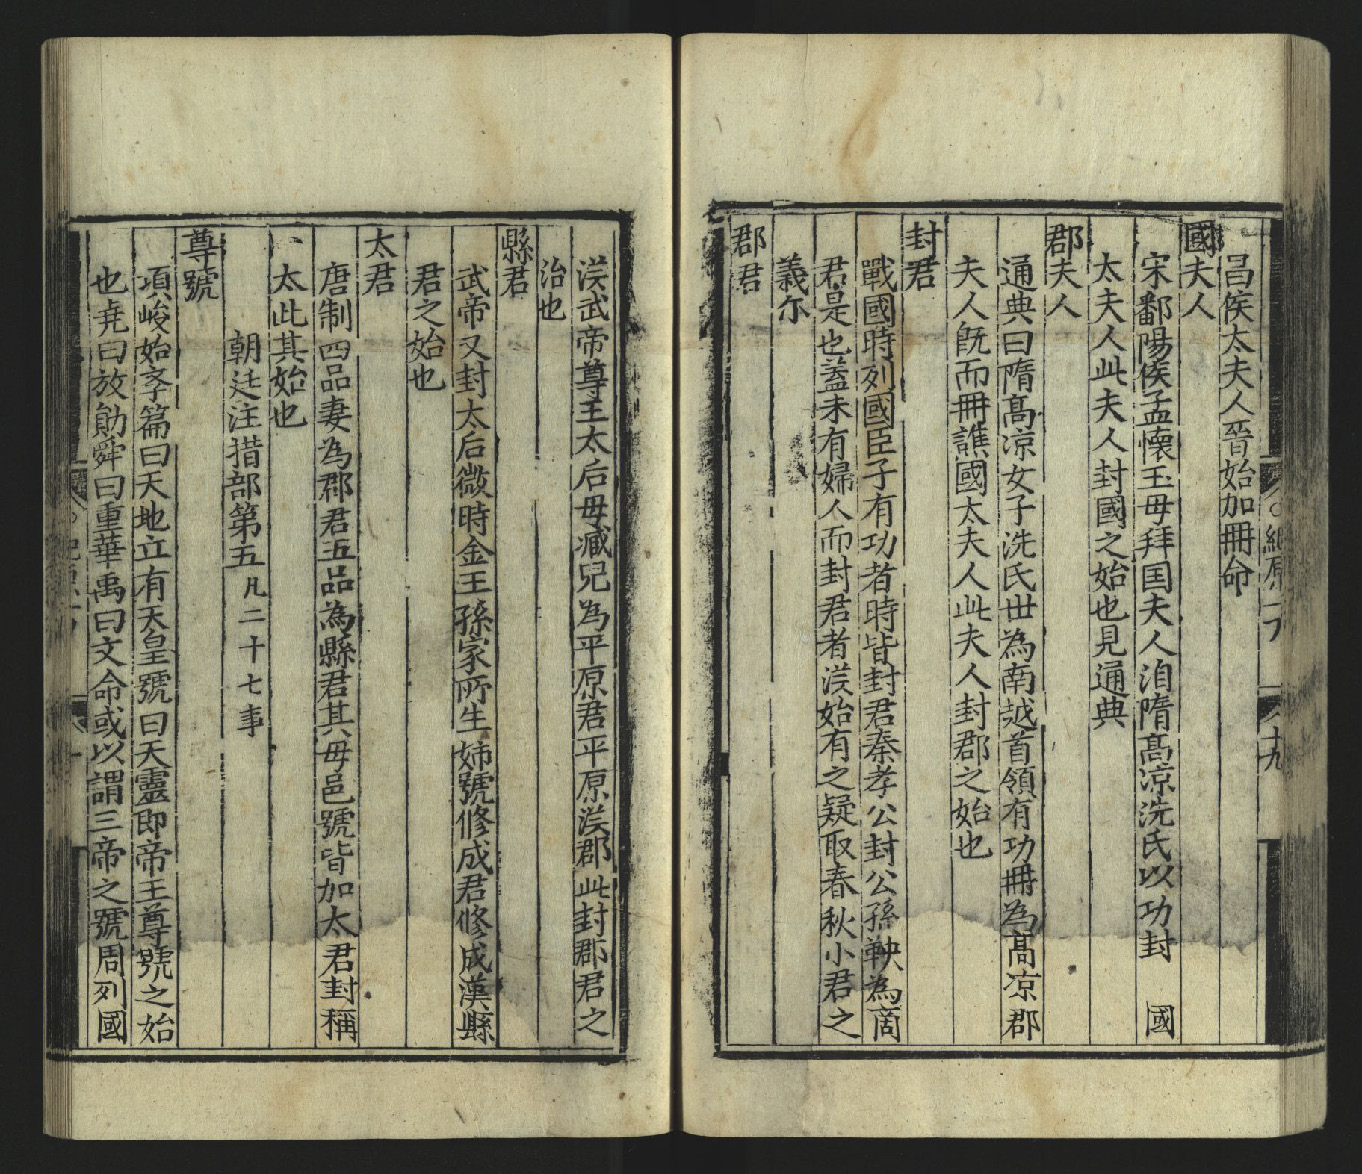 昌侯太夫人晉始加冊命
國夫人
宋鄱陽侯孟懷玉母拜国夫人洎隋髙凉洗氏以功封 國
太夫人此夫人封國之始也見通典
郡夫人
通典曰隋髙凉女子洗氏世為南越首領有功冊為髙凉郡
夫人旣而冊譙國太夫人此夫人封郡之始也
封君
戰國時列國臣子有功者時皆封君秦孝公封公孫鞅為商
君是也葢未有婦人而封君者漢始有之疑取春秋小君之
義尓
郡君
漢武帝尊王太后母臧兒為平原君平原漢郡此封郡君之
治也
縣君
武帝又封太后微時金王孫家所生姉號修成君修成漢縣
君之始也
太君
唐制四品妻為郡君五品為縣君其母邑號皆加太君封稱
太此其始也
朝廷注措部第五 凡二十七事
尊號
項峻始李篇曰天地立有天皇號曰天靈即帝王尊號之始
也尭曰放勛舜曰重華禹曰文命或以謂三帝之號周列國
十九